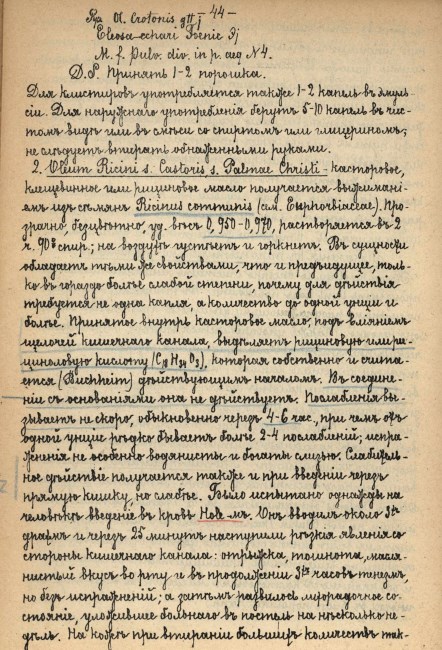 -44-
Rp. Ol. Crotonis gtt j
Elaeosacchari Foenic ℈j
M. f. pulv. div. in p. aeq №4.
D.S. Принять 1-2 порошка.
Для клистировъ употребляется также 1-2 капель въ эмуль-
сіи. Для наружнаго употребленія берутъ 5-10 капель въ чис-
томъ видѣ или въ смѣси со спиртомъ или глицериномъ;
не слѣдуетъ втирать обнаженными руками.
2. Oleum Ricini s. Castoris s. Palmae Christi - касторовое,
клещевинное или рициновое масло получается выжимані-
емъ изъ сѣмянъ Ricinus communis (см. Euphorbiaceae). Про-
зрачно, безцвѣтно, уд. вѣсъ 0,950-0,970, растворяется въ 2
ч. 90° спир.; на воздухѣ густѣетъ и горкнетъ. Въ сущности
обладаетъ тѣми же свойствами, что и предъидущее, толь-
ко въ гораздо болѣе слабой степени, почему для дѣйствія
требуется не одна капля, а количество до одной унціи и
болѣе. Принятое внутрь касторовое масло, подъ вліяніемъ
щелочей кишечнаго канала, выдѣляетъ рициновую или ри-
цинолевую кислоту (C18 H34 O3), которая собственно и счита-
ется (Buchheim) дѣйствующимъ началомъ. Въ соедине-
ніи съ основаніями она не дѣйствуетъ. Послабленія вы-
зываетъ не скоро, обыкновенно черезъ 4-6 час., при чемъ отъ
одной унціи рѣдко бываетъ болѣе 2-4 послабленій; испра-
жненія не особенно водянисты и богаты слизью. Слабитель-
ное дѣйствіе получается также и при введеніи черезъ
прямую кишку, но слабѣе. Было испытано однажды на
человѣкѣ введеніе въ кровь Hale-мъ. Онъ вводилъ около 3хъ
драхмъ и черезъ 25 минутъ наступили рѣзкія явленія со
стороны кишечнаго канала: отрыжка, тошнота, масля-
нистый вкусъ во рту и въ продолженіи 3хъ часовъ тенезмъ,
но безъ испражненій; а затѣмъ развилось лихорадочное со-
стояніе, уложившее больнаго въ постель на нѣсколько не-
дѣль. На кожѣ при втираніи большихъ количествъ так-